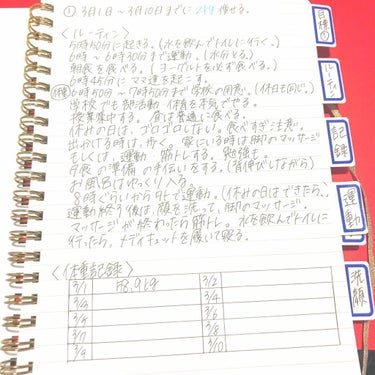 ① 3月1日〜3月10日までに2kg痩せる。
〈ルーティン〉
5時50分に起きる。(水を飲んでトイレに行く。)
6時〜6時30分まで運動。(水分とる。)
朝食を食べる。(ヨーグルトを必ず食べる。)
6時45分にママ達を起こす。
6時50分〜7時50分まで学校の用意。(休日も同じ。)
学校でも部活動、体育を本気でやる。
授業集中する。昼は普通に食べる。
休みの日は、ゴロゴロしない。食べすぎ注意。
出かける時は、歩く。家にいる時は脚のマッサージ
もしくは、運動、筋トレする。勉強も。
夕食の準備のお手伝いをする。(背伸びしながら)
お風呂はゆっくり入る。
8時ぐらいから外で運動。(休みの日はできたら。)
運動終う後は、顔を洗って、脚のマッサージ。
マッサージが終わったら筋トレ。水を飲んでトイレに
行ったら、メディキュットを履いて寝る。
〈体重記録〉
3/1 58.9kg 3/2
3/3 3/4
3/5 3/6
3/7 3/8
3/9 3/10
目標①
ルーティン
記録
運動
洗顔